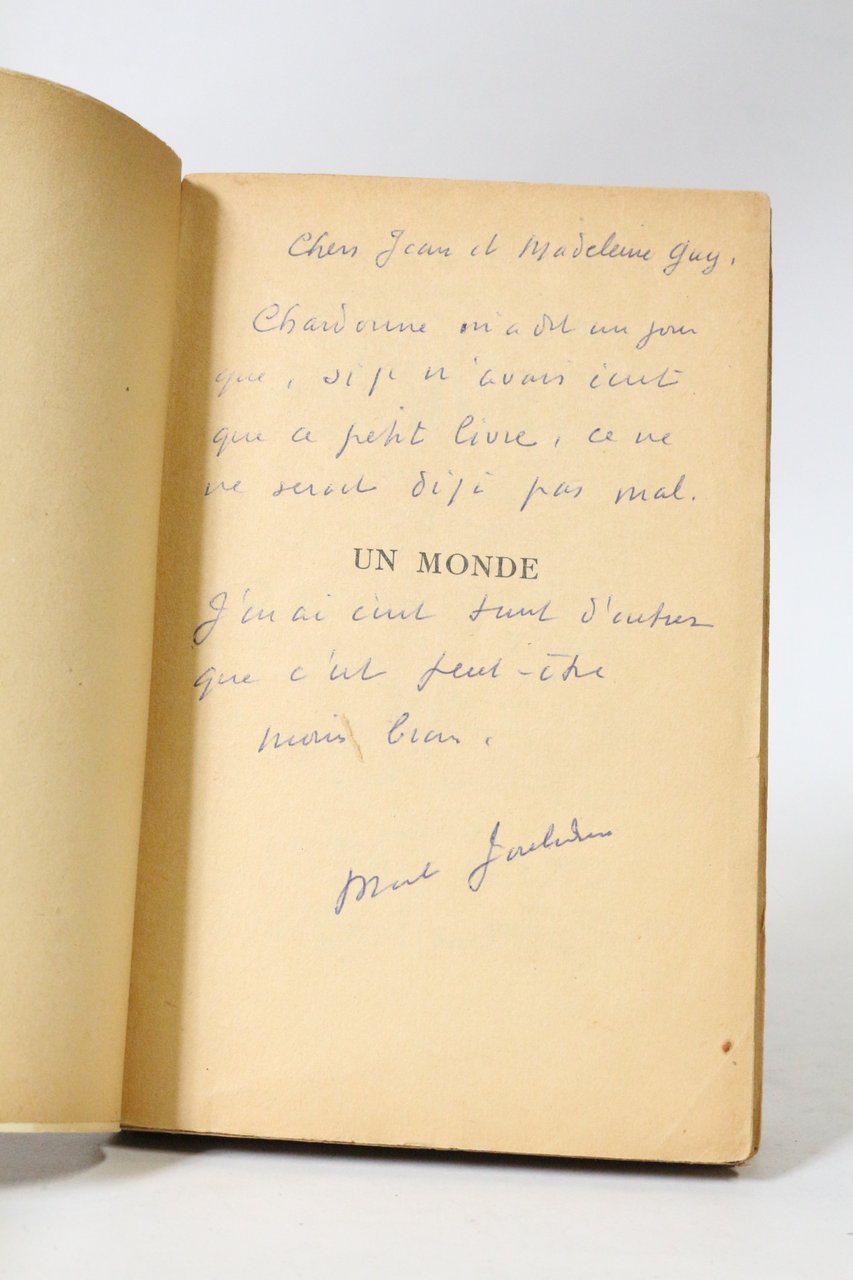 Chers Jean et Madeleine Guy,
Chardonne m'a dit un jour
que, si je n'avais écrit
que ce petit livre, ce ne
ne serait déjà pas mal.
UN MONDE
J'en ai écrit tant d'autres
que c'est peut-être
moins bien.
Marcel Jouhandeau